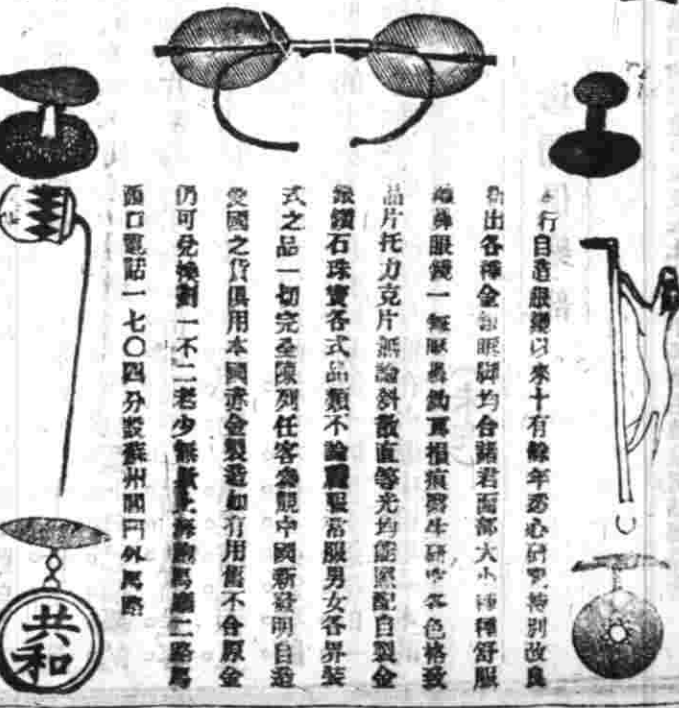 本行自造眼鏡以來十有餘年悉心研究特別改良
新出各種金絲眼脚均合諸君面部大小種種舒服
鼻眼鏡一無眼鼻鈎頁損痕醫生研究各色格致
晶片托力克片無論斜散直等光均能照配自製金
銀鑽石珠寶各式品類不論禮服常服男女各界裝
式之品一切完全陳列任客參觀中國新發明自造
愛國之貨俱用本國赤金製造如有用舊不合原金
仍可兌換劃一不二老少無欺上海跑馬廳二路馬
西口電話一七〇四分設蘇州閶門外馬路
共和